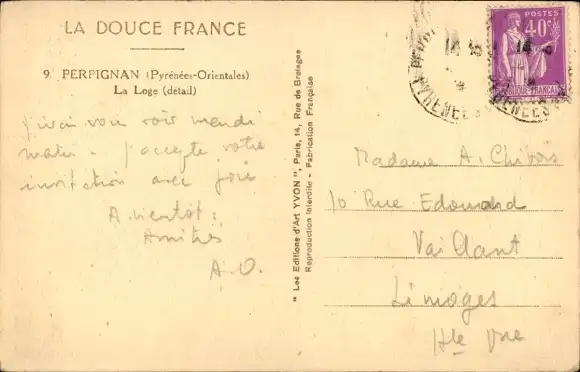 LA DOUCE FRANCE
9. PERPIGNAN (Pyrénées-Orientales)
La Loge (détail)
J'irai vous voir
matin - J'accepte votre
invitation avec joie
A bientôt :
Amitiés
A.
" Les Editions d'Art YVON ", Paris, 14, Rue de Bretagne
Reproduction Interdite - Fabrication Française
POSTES
40c
REPUBLIQUE FRANCAISE
PYRENEES
Madame A. Chibois
10 Rue Edouard
Vaillant
Limoges
Hte Vne